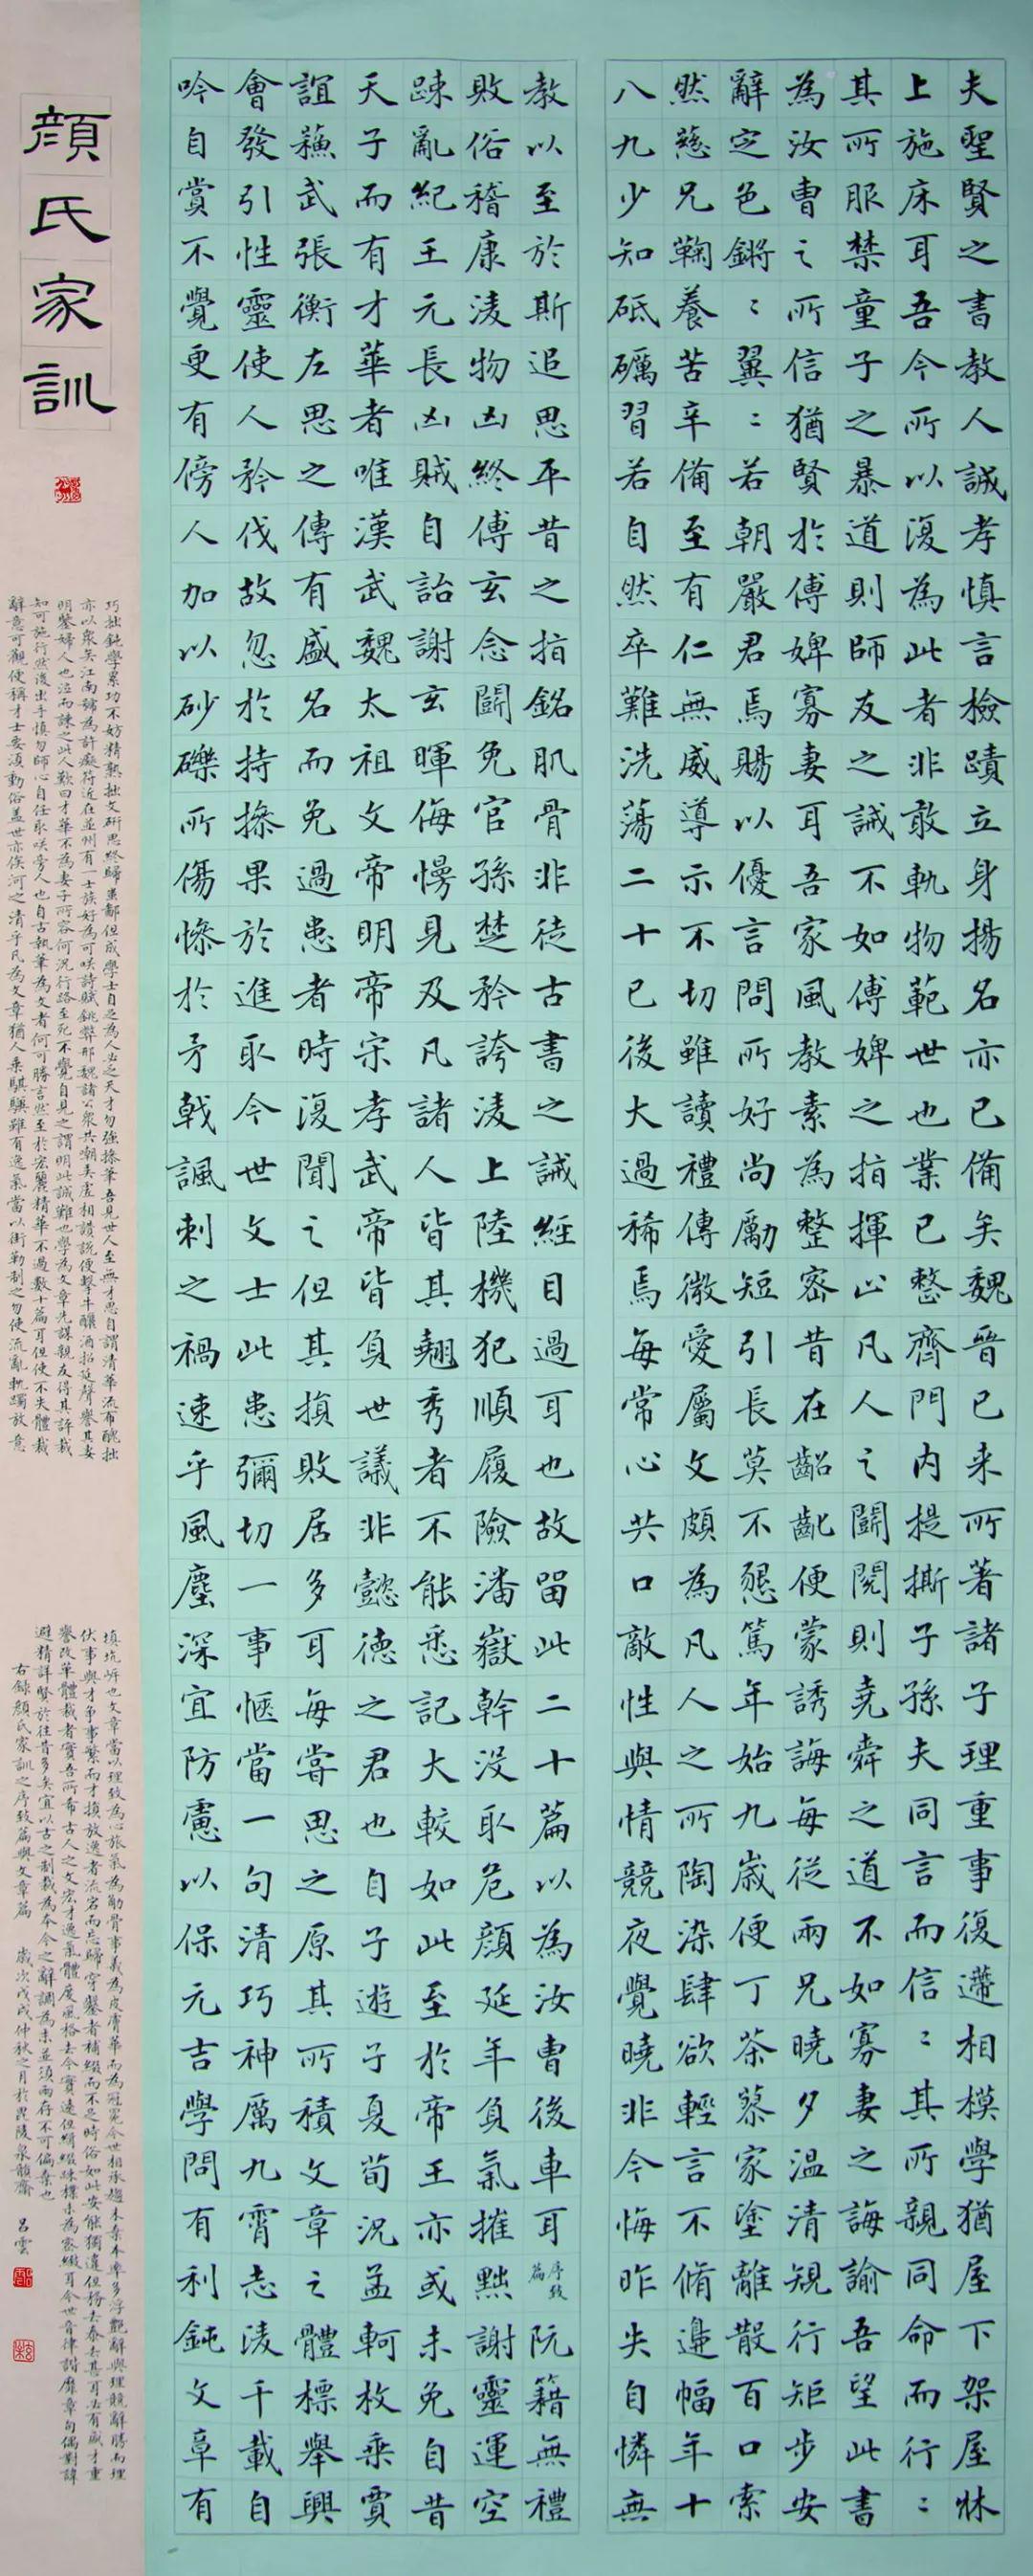 夫聖賢之書教人誠孝慎言檢蹟立身揚名亦已備矣魏晉已来所著諸子理重事復遞相模學猶屋下架屋牀
上施床耳吾今所以復為此者非敢軌物範世也業已整齊門内提撕子孫夫同言而信〻其所親同命而行〻
其所服禁童子之暴道則師友之誡不如傅婢之指揮止凡人之鬭䦧則堯舜之道不如寡妻之誨諭吾望此書
為汝曹之所信猶賢於傅婢寡妻耳吾家風教素為整密昔在齠齔便蒙誘誨每從兩兄曉夕温清規行矩步安
辭定色鏘〻翼〻若朝嚴君焉賜以優言問所好尚勵短引長莫不懇篤年始九歲便丁荼蓼家塗離散百口索
然慈兄鞠養苦辛備至有仁無威導示不切雖讀禮傳微愛屬文頗為凡人之所陶染肆欲輕言不脩邊幅年十
八九少知砥礪習若自然卒難洗蕩二十已後大過稀焉每常心共口敵性與情競夜覺曉非今悔昨失自憐無
教以至於斯追思平昔之指銘肌骨非徒古書之誡經目過耳也故留此二十篇以為汝曹後車耳序致篇阮籍無禮
敗俗稽康淩物凶終傅玄念鬭免官孫楚矜誇淩上陸機犯順履險潘嶽幹没取危顔延年負氣摧黜謝靈運空
踈亂紀王元長凶賊自詒謝玄暉侮慢見及凡諸人皆其翹秀者不能悉記大較如此至於帝王亦或未免自昔
天子而有才華者唯漢武魏太祖文帝明帝宋孝武帝皆負世議非懿德之君也自子遊子夏荀況孟軻枚乘賈
誼蘓武張衡左思之儔有盛名而免過患者時復聞之但其損敗居多耳每嘗思之原其所積文章之體標舉興
會發引性靈使人矜伐故忽於持操果於進取今世文士此患彌切一事愜當一句清巧神厲九霄志淩千載自
吟自賞不覺更有傍人加以砂礫所傷慘於矛戟諷刺之禍速乎風塵深宜防慮以保元吉學問有利鈍文章有
顏氏家訓
巧拙鈍學累功不妨精熟拙文研思終歸蚩鄙但成學士自足為人必乏天才勿強操筆吾見世人至無才思自謂清華流布醜拙
亦以衆矣江南號為訡癡符近在並州有一士族好為可咲詩賦銚弊邢魏諸公衆共嘲弄虚相讃説便擊牛釃酒招延聲譽其妻
明鑒婦人也泣而諫之此人歎曰才華不為妻子所容何況行路至死不覺自見之謂明此誠難也學為文章先謀親友得其評裁
知可施行然後出手慎勿師心自任取咲旁人也自古執筆為文者何可勝言然至於宏麗精華不過數十篇耳但使不失體裁
辭意可觀便稱才士要須動俗蓋世亦俟河之清乎凡為文章猶人乘騏驥雖有逸氣當以銜勒制之勿使流亂軌躅放意
填坑岍也文章當以理致為心旅氣為筋骨事義為皮膚華而為冠冕今世相承趨末棄本率多浮艷辭與理競辭勝而理
伏事與才争事繁而才損放逸者流宕而忘歸穿鑿者補綴而不足時俗如此安能獨違但務去泰去甚耳必有盛才重
譽改革體裁者實吾所希古人之文宏才逸氣體度風格去今實遠但緝綴疎樸未為密緻耳今世音律諧靡章句偶對諱
避精詳賢於往昔多矣宜以古之制裁為本今之辭調為末並須兩存不可偏棄也
右錄顏氏家訓之序致篇與文章篇 歲次戊戌仲秋之月於毘陵泉韻齋 呂雲